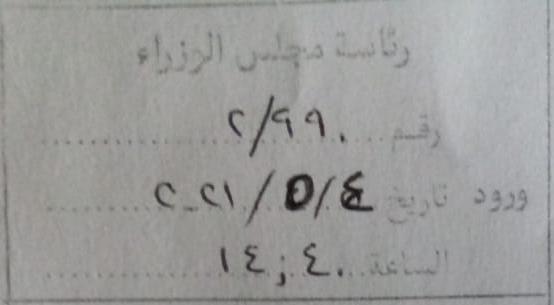 رئاسة مجلس الوزراء
رقم ٢/٩٩٠
ورود تاريخ ٤/٥/٢٠٢١
الساعة ١٤:٤٠